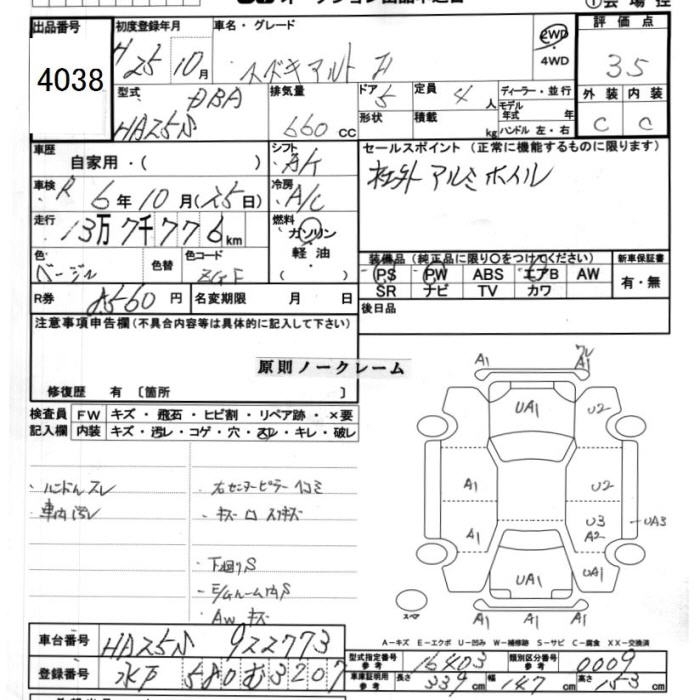 出品番号
4038
初度登録年月
H 25 10月
車名・グレード
スズキ アルト F
2WD
4WD
評価点
3.5
外装 内装
C C
型式
DBA
HA25S
排気量
660 cc
ドア
5
定員
4 人
形状
積載
kg
ディーラー・並行
モデル年式 年
ハンドル 左・右
車歴
自家用・( )
シフト
冷房
A/C
車検
R 6年10月(25日)
走行
13万7千776km
燃料
ガソリン
軽油
色
ベージュ
色替
色コード
R券
8560円
名変期限 月 日
セールスポイント (正常に機能するものに限ります)
社外アルミホイル
装備品 (純正品に限り〇をつけてください)
PS PW ABS エアB AW
SR ナビ TV カワ
新車保証書
有・無
後日品
注意事項申告欄(不具合内容等は具体的に記入して下さい)
原則ノークレーム
修復歴 有〔箇所 〕
検査員記入欄
FW キズ・飛石・ヒビ割・リペア跡・×要
内装 キズ・汚レ・コゲ・穴・スレ・キレ・破レ
・ハンドルスレ
・車内汚レ
・右センターピラー凹ミ
・下廻りS
・E/gルーム内S
・AWキズ
A1
A1
UA1
U2
A1
U2
U3
A2
UA3
A1
UA1
UA1
A1 A1 A1
スペア
A-キズ E-エクボ U-凹み W-補修跡 S-サビ C-腐食 XX-交換済
車台番号
HA25S 922773
登録番号
水戸 580 む 3207
型式指定番号
参考
16403
類別区分番号
参考
0009
車庫証明用
参考
長さ 339cm 幅 147cm 高さ 153cm